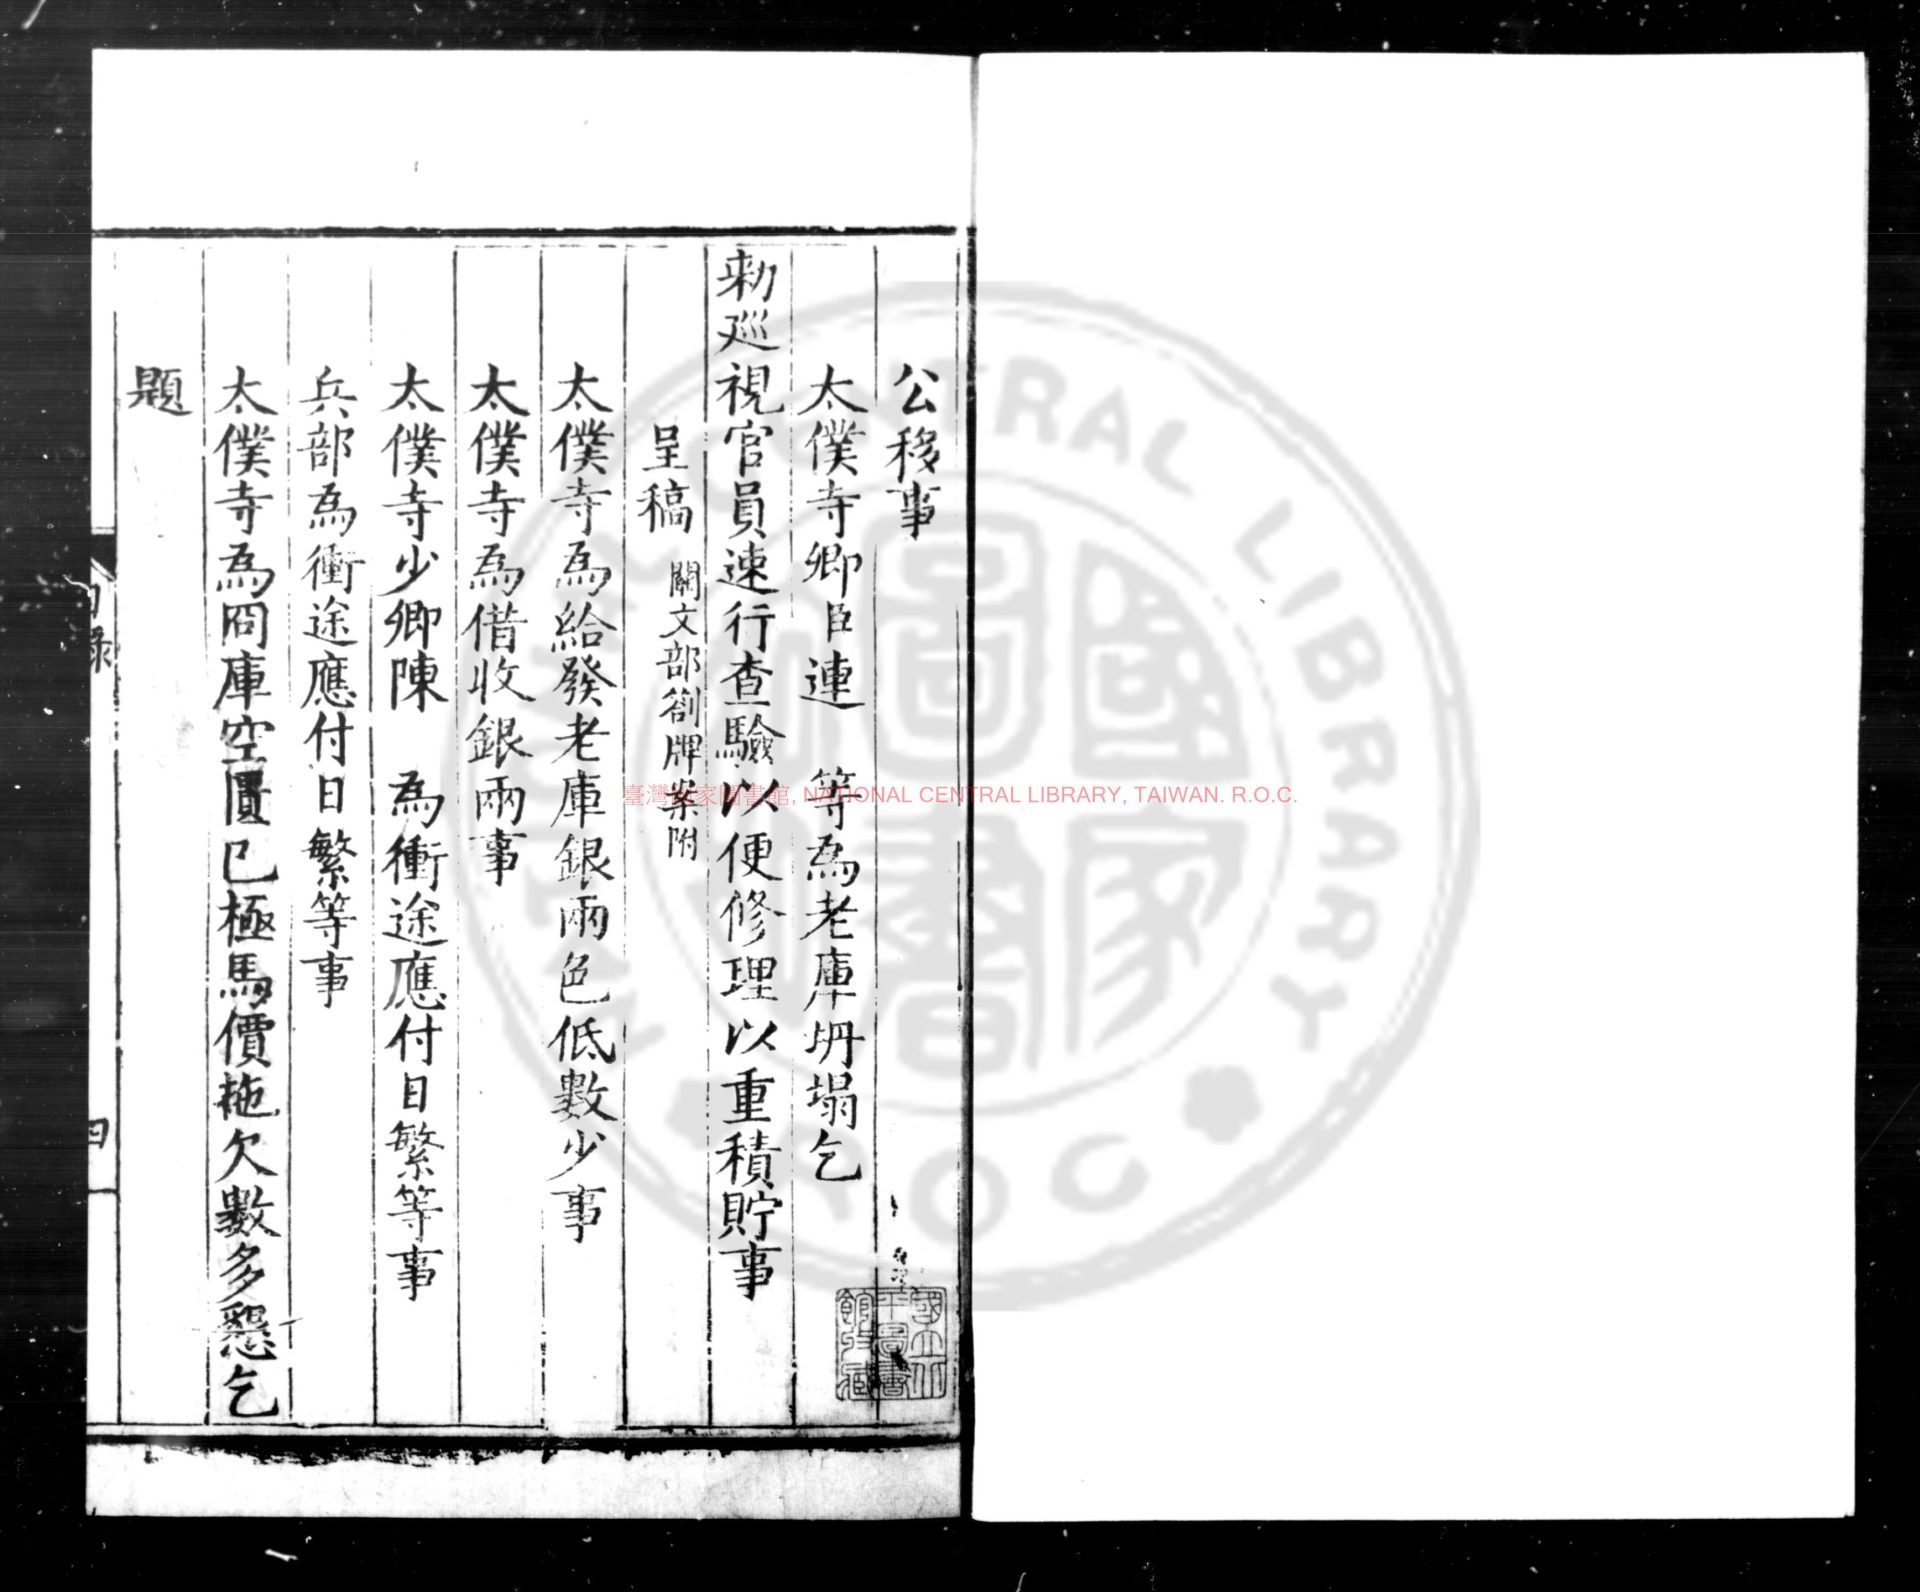 公移事
太僕寺卿臣連　等為老庫坍塌乞
勑廵視官員速行查驗以便修理以重積貯事
呈稿　關文部劄牌案附
太僕寺為給發老庫銀兩色低數少事
太僕寺為借收銀兩事
太僕寺少卿陳　為衝途應付日繁等事
兵部為衝途應付日繁等事
太僕寺為冏庫空匱已極馬價拖欠數多懇乞
題
目錄
四
國立北平圖書館收藏
臺灣國家圖書館, NATIONAL CENTRAL LIBRARY, TAIWAN. R.O.C.